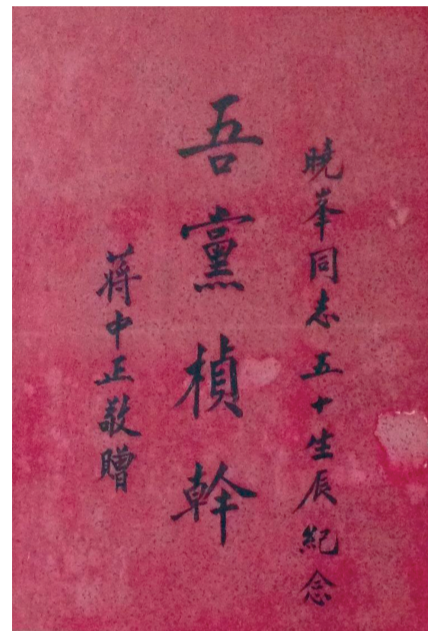 曉峯同志五十生辰紀念
吾黨楨幹
蔣中正敬贈